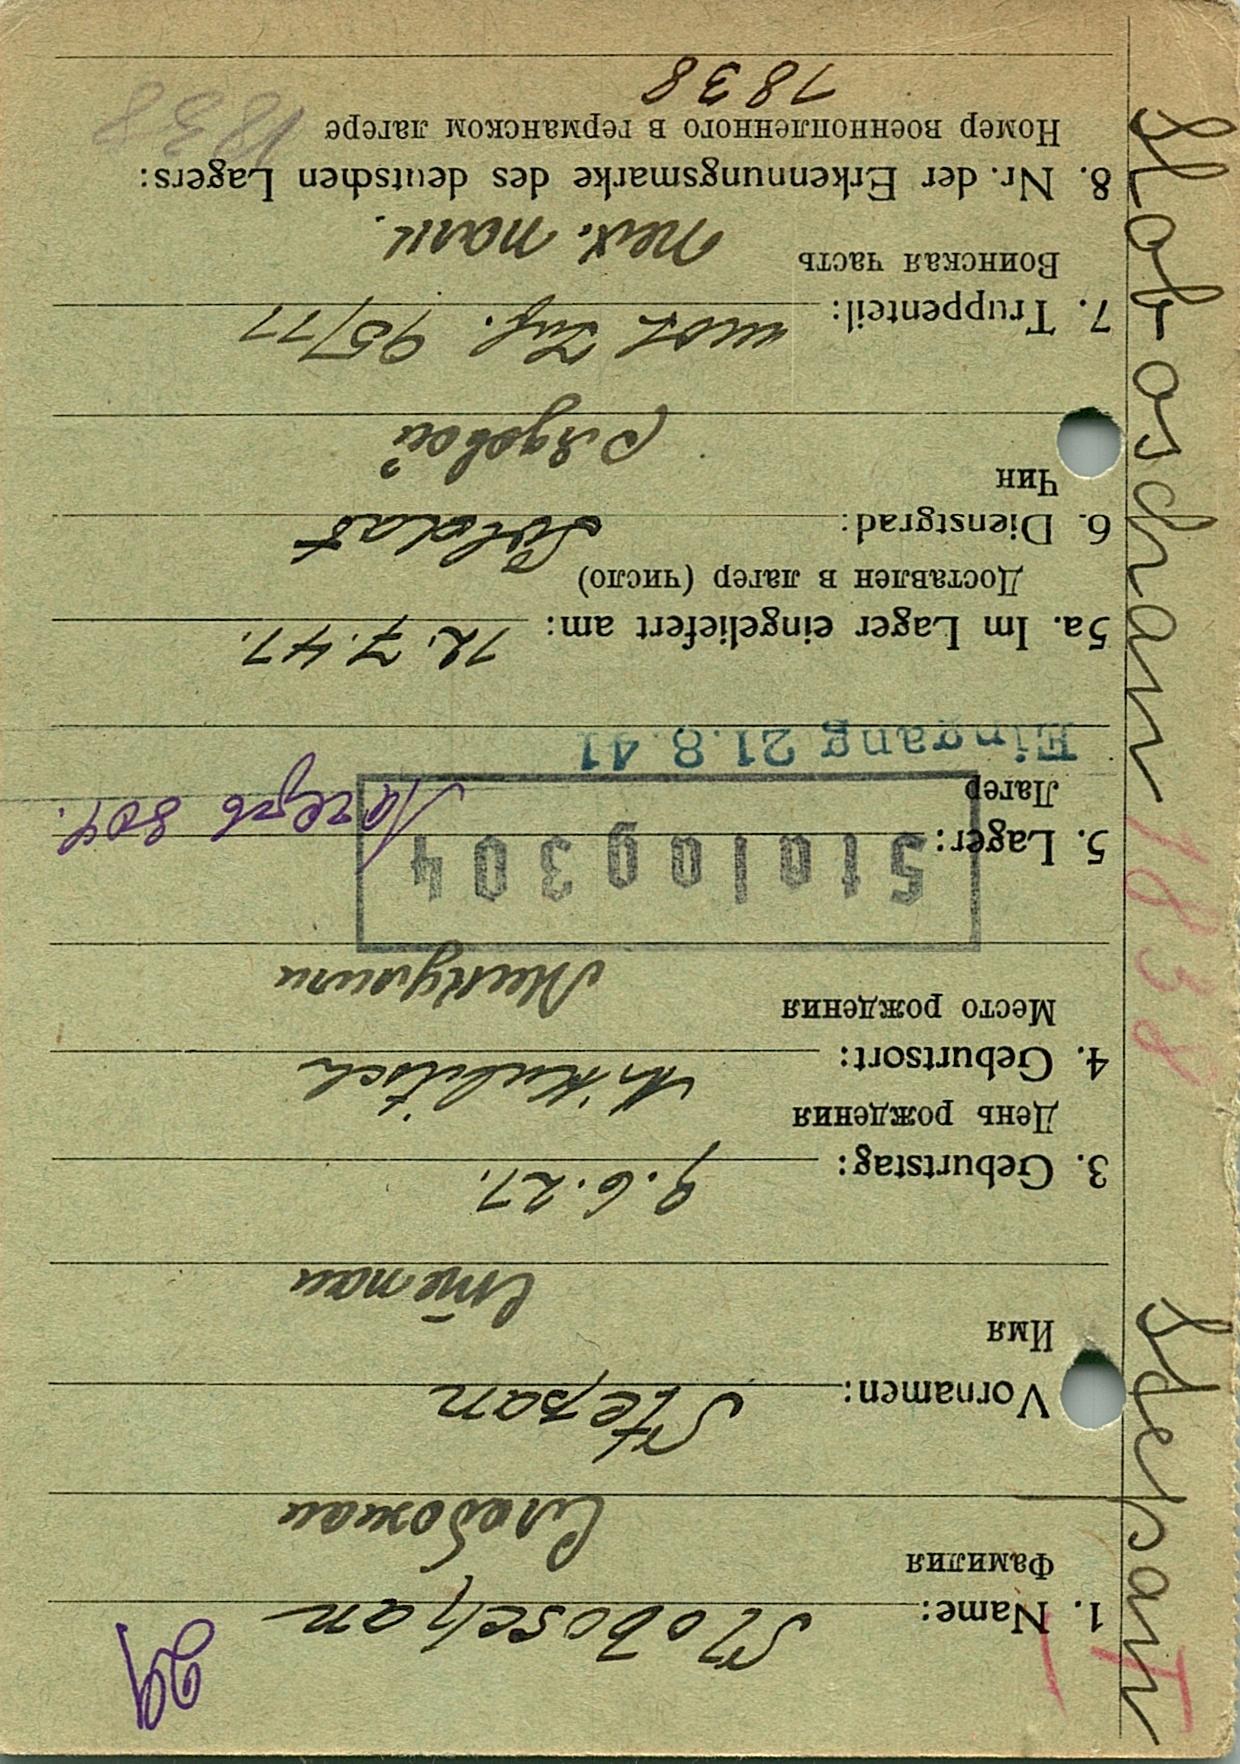 29
1. Name: Sloboschan
Фамилия
Слабожан
Vornamen: Stepan
Имя
Степан
3. Geburtstag: 9.6.21.
День рождения
4. Geburtsort:
Место рождения
5. Lager: Stalag 304
Лагерь 304.
Лагер
Eingang 21.8.41
5a. Im Lager eingeliefert am: 12.7.41.
Доставлен в лагер (число)
6. Dienstgrad: Soldat
Чин
рядовой
7. Truppenteil: Inf. 95/11
Воинская часть
8. Nr. der Erkennungsmarke des deutschen Lagers:
Номер военнопленного в германском лагере
1838
1838
Sloboschan 1838 Stepan